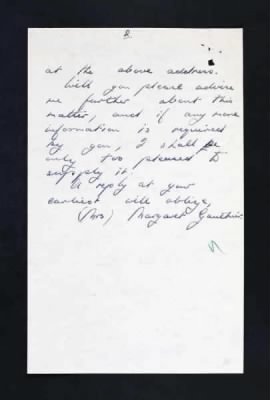 2
at the above address.
Will you please advise
me further about this
matter, and if any more
information is required
by you, I shall be
only too pleased to
supply it.
A reply at your
earliest will oblige,
(Mrs) Margaret